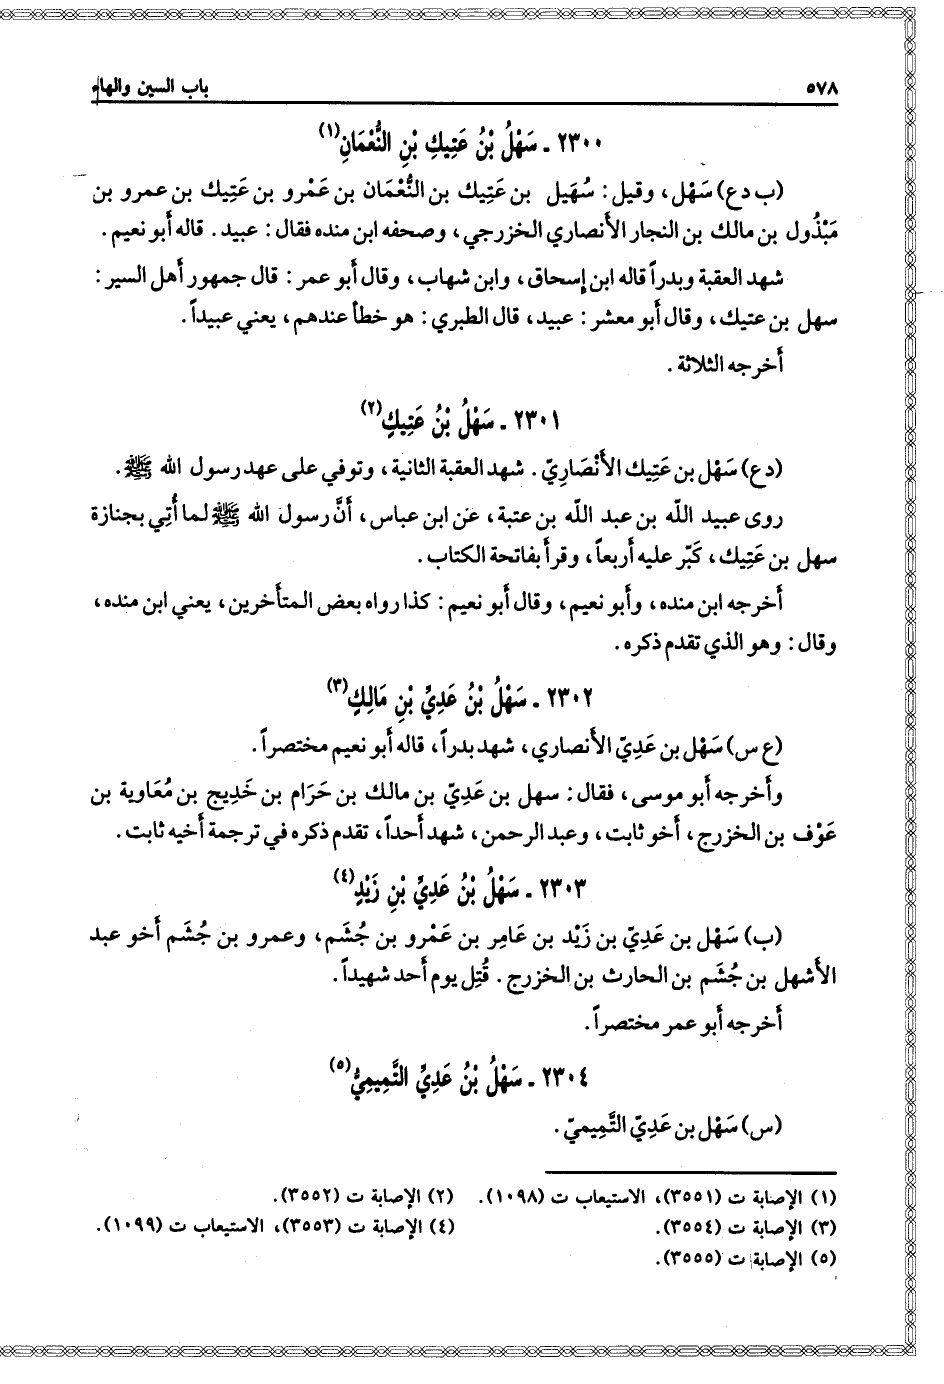 ٥٧٨ باب السين والهاء
٢٣٠٠ ـ سَهْلُ بْنُ عَتِيكِ بْنِ النُّعْمَانِ(١)
(ب دع) سَهْل، وقيل: سُهَيل بن عَتِيك بن النُّعْمَان بن عَمْرو بن عَتِيك بن عمرو بن
مَبْذُول بن مالك بن النجار الأنصاري الخزرجي، وصحفه ابن منده فقال: عبيد. قاله أبو نعيم.
شهد العقبة وبدراً قاله ابن إسحاق، وابن شهاب، وقال أبو عمر: قال جمهور أهل السير:
سهل بن عتيك، وقال أبو معشر: عبيد، قال الطبري: هو خطأ عندهم، يعني عبيداً.
أخرجه الثلاثة.
٢٣٠١ ـ سَهْلُ بْنُ عَتِيكٍ(٢)
(دع) سَهْل بن عَتِيك الأَنْصَارِيّ. شهد العقبة الثانية، وتوفي على عهد رسول الله ﷺ.
روى عبيد اللّه بن عبد اللّه بن عتبة، عن ابن عباس، أنَّ رسول الله ﷺ لما أُتِي بجنازة
سهل بن عَتِيك، كَبّر عليه أربعاً، وقرأ بفاتحة الكتاب.
أخرجه ابن منده، وأبو نعيم، وقال أبو نعيم: كذا رواه بعض المتأخرين، يعني ابن منده،
وقال: وهو الذي تقدم ذكره.
٢٣٠٢ ـ سَهْلُ بْنُ عَدِيِّ بْنِ مَالِكٍ(٣)
(ع س) سَهْل بن عَدِيّ الأنصاري، شهد بدراً، قاله أبو نعيم مختصراً.
وأخرجه أبو موسى، فقال: سهل بن عَدِيّ بن مالك بن حَرَام بن خَدِيج بن مُعَاوية بن
عَوْف بن الخزرج، أخو ثابت، وعبد الرحمن، شهد أحداً، تقدم ذكره في ترجمة أخيه ثابت.
٢٣٠٣ ـ سَهْلُ بْنُ عَدِيِّ بْنِ زَيْدٍ(٤)
(ب) سَهْل بن عَدِيّ بن زَيْد بن عَامِر بن عَمْرو بن جُشَم، وعمرو بن جُشَم أخو عبد
الأشهل بن جُشَم بن الحارث بن الخزرج. قُتِل يوم أحد شهيداً.
أخرجه أبو عمر مختصراً.
٢٣٠٤ ـ سَهْلُ بْنُ عَدِيِّ التَّمِيمِيُّ(٥)
(س) سَهْل بن عَدِيّ التَّمِيميّ.
(١) الإصابة ت (٣٥٥١)، الاستيعاب ت (١٠٩٨). (٢) الإصابة ت (٣٥٥٢).
(٣) الإصابة ت (٣٥٥٤). (٤) الإصابة ت (٣٥٥٣)، الاستيعاب ت (١٠٩٩).
(٥) الإصابة ت (٣٥٥٥).